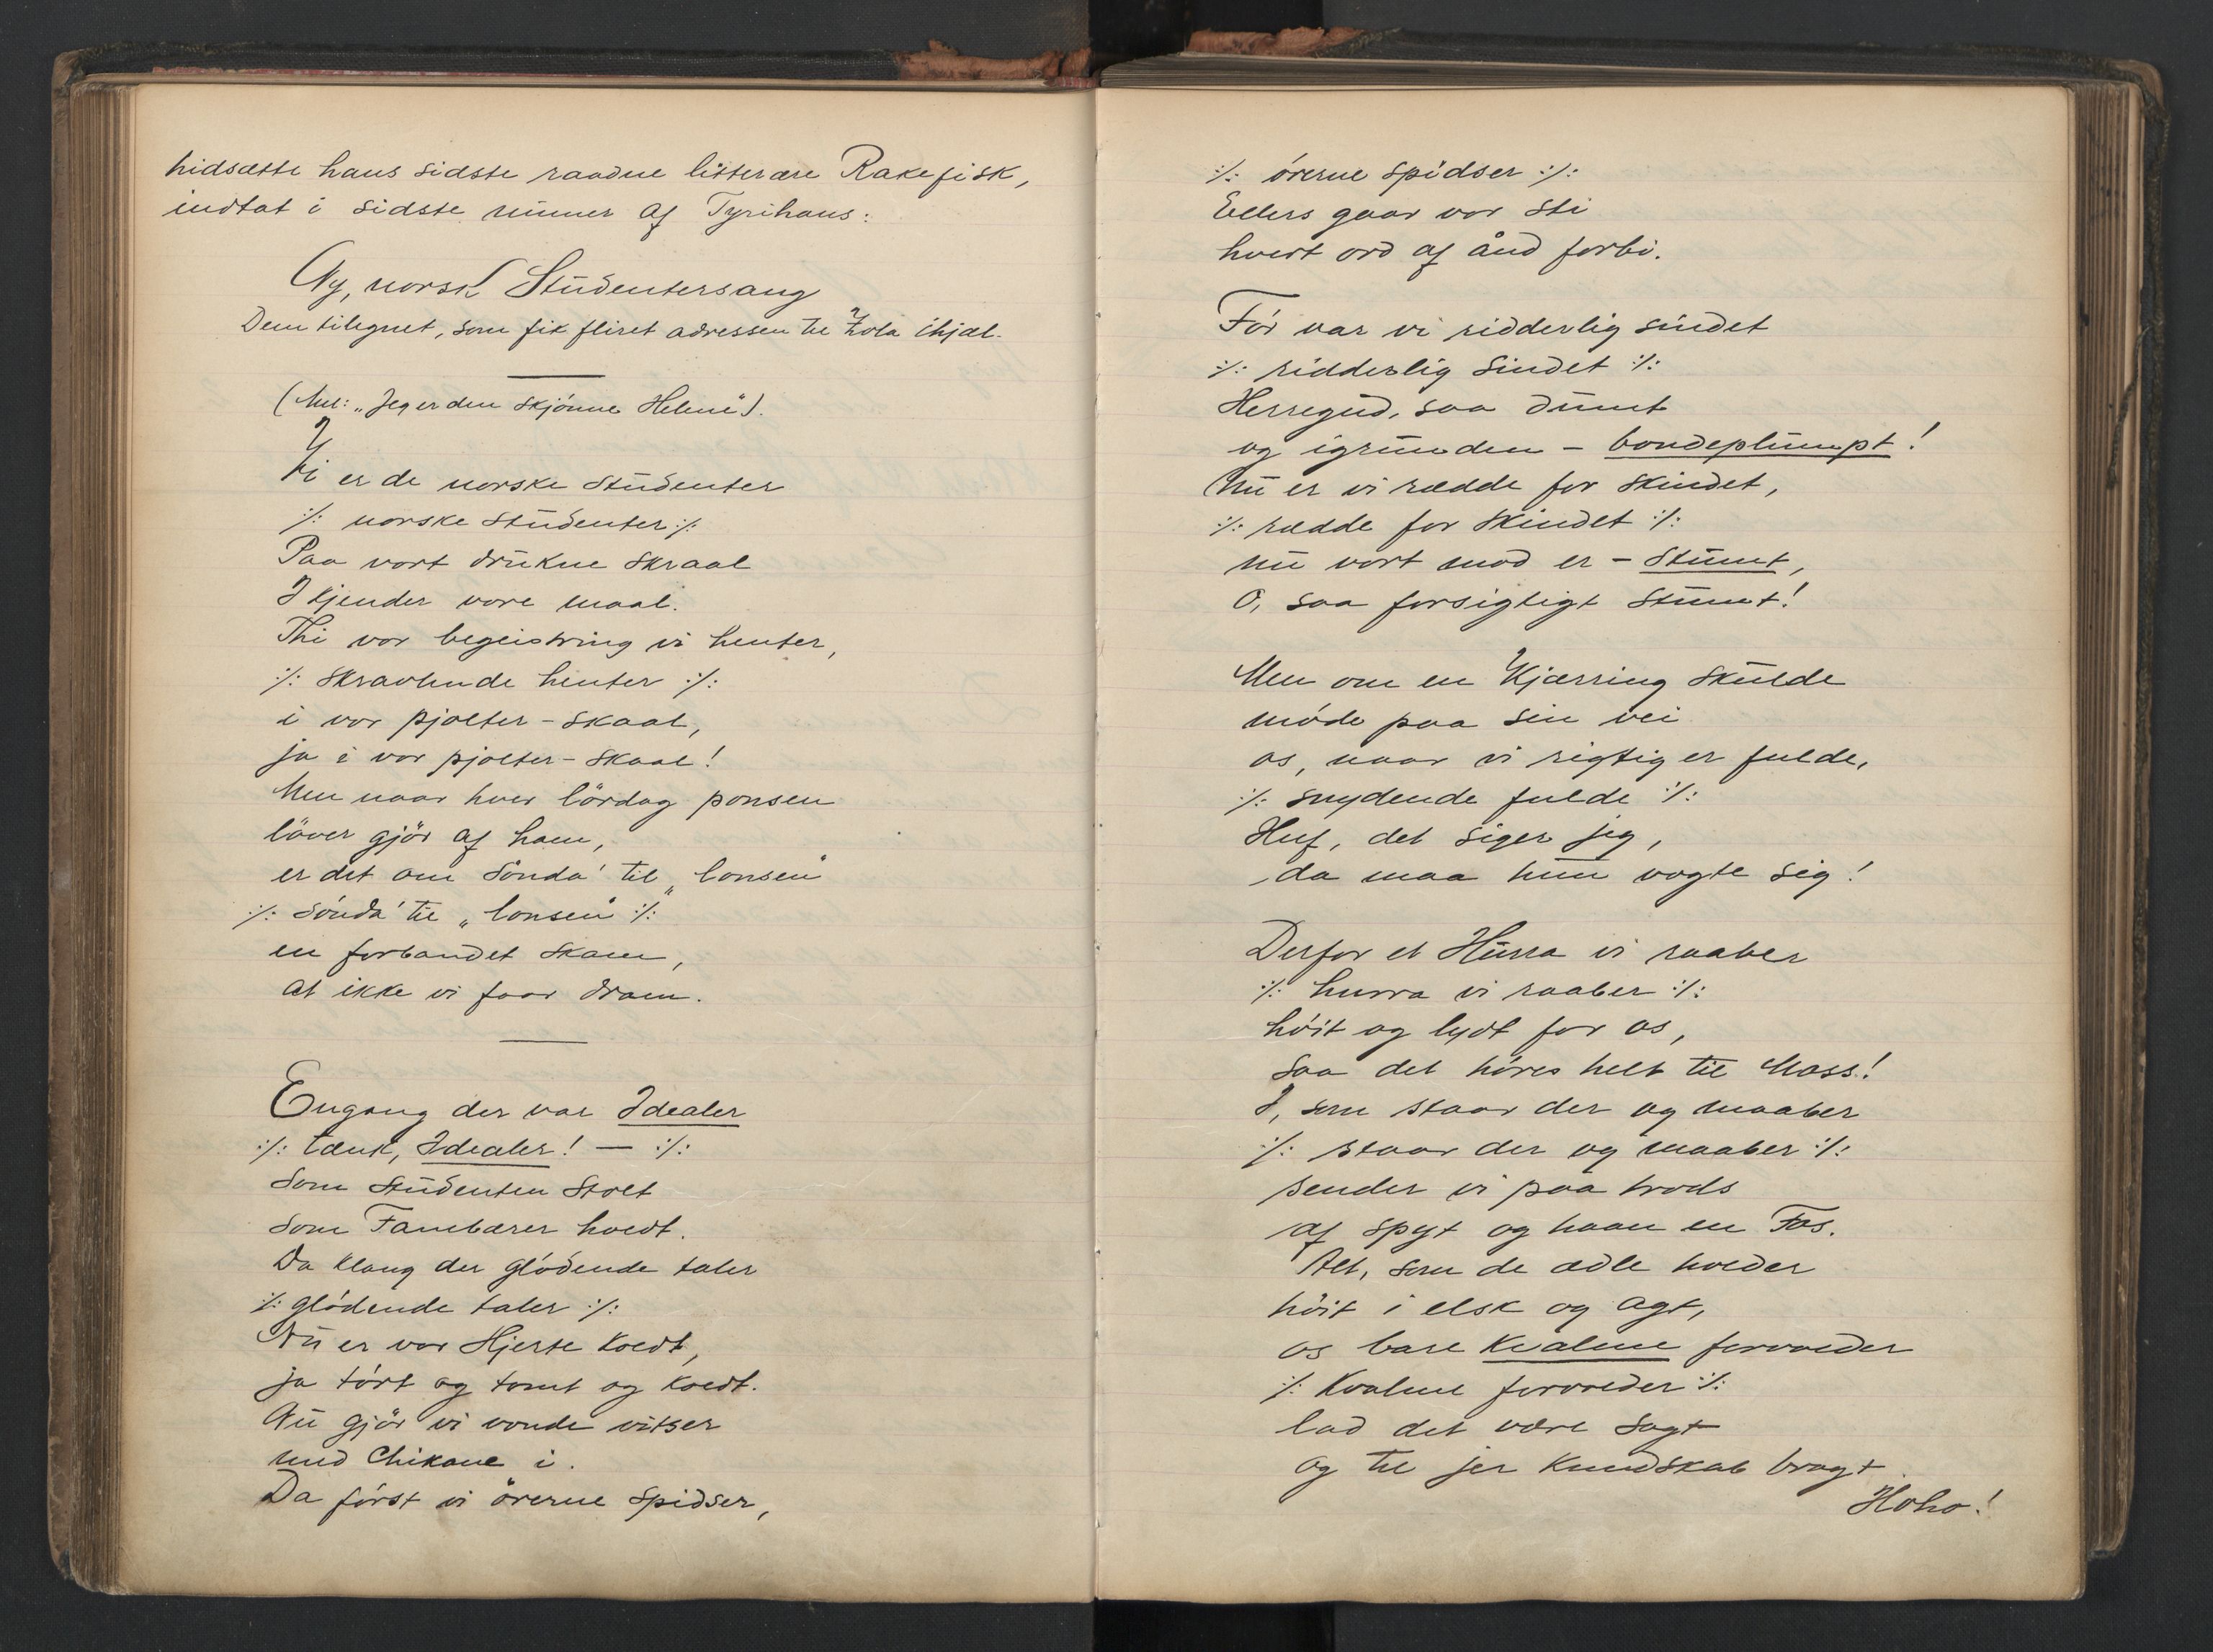 hidsætte hans sidste raadne litterære Rakefisk,
indtat i sidste nummer af Tyrihans:
Ny, norsk Studentersang
Dem tilegnet, som fik fliret adressen til Zola ihjæl.
(Mel: „Jeg er den skjønne Helene").
Vi er de norske studenter
:/: norske studenter :/:
Paa vort drukne skraal
I kjender vore maal.
Thi vor begeistring vi henter,
:/: skravlende henter :/:
i vor pjolter-skaal,
ja i vor pjolter-skaal!
Men naar hver lördag ponsen
löver gjör af ham,
er det om Sönda' til „lonsen"
:/: Sönda' til „lonsen" :/:
en forbandet skam,
at ikke vi faar dram.
Engang der var Idealer
:/: tænk, Idealer! — :/:
Som Studenten stolt
Som Fanebærer holdt.
Da klang der glödende taler
:/: glödende taler :/:
Nu er vor Hjerte koldt,
ja tört og tomt og koldt.
Nu gjör vi vonde vitser
med Chikane i.
Da först vi örerne spidser,
:/: örerne spidser :/:
Ellers gaar vor sti
hvert ord af ånd forbi.
För var vi ridderlig sindet
:/: ridderlig sindet :/:
Herregud, saa dumt
og igrunden – bondeplumpt!
Nu er vi rædde for skindet,
:/: rædde for skindet :/:
nu vort mod er – stumt,
O, saa forsigtigt stumt!
Men om en Kjærring skulde
möde paa sin vei
os, naar vi rigtig er fulde,
:/: snydende fulde :/:
Huf, det siger jeg,
da maa hun vogte sig!
Derfor et Hurra vi raaber
:/: hurra vi raaber :/:
höit og lydt for os,
saa det höres helt til Moss!
I, som staar der og maaber
:/: staar der og maaber :/:
sender vi paa trods
af spyt og haan en Fos.
Alt, som de ædle holder
höit i elsk og agt,
os bare Kvalme forvolder
:/: Kvalme forvolder :/:
lad det være sagt
og til jer kundskab bragt.
Hoho!